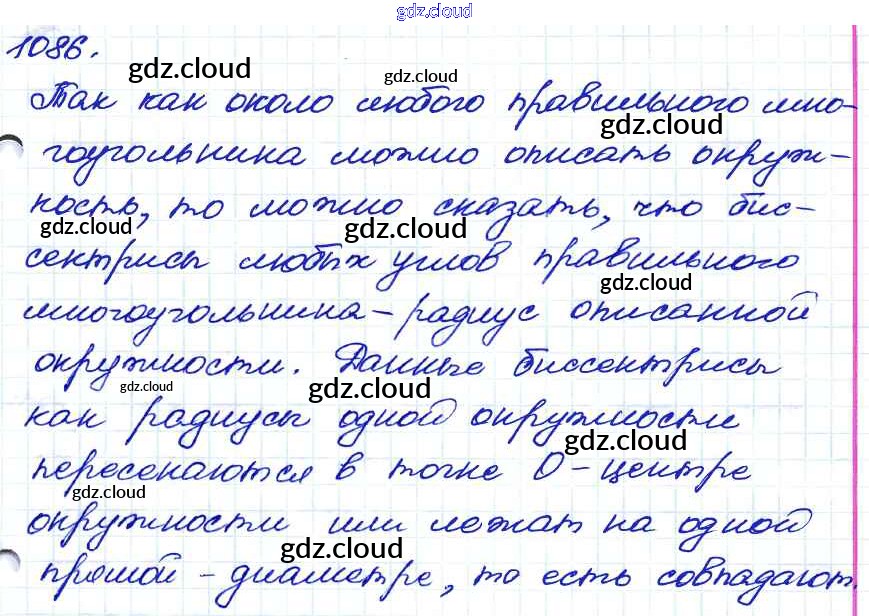 gdz.cloud
1086.
gdz.cloud gdz.cloud
Так как около любого правильного мно-
gdz.cloud
гоугольника можно описать окруж-
ность, то можно сказать, что бис-
gdz.cloud gdz.cloud
сектрисы любых углов правильного
gdz.cloud
многоугольника - радиус описанной
окружности. Данные биссектрисы
gdz.cloud gdz.cloud
как радиусы одной окружности
gdz.cloud
пересекаются в точке О - центре
gdz.cloud
окружности или лежат на одной
gdz.cloud
прямой - диаметре, то есть совпадают.